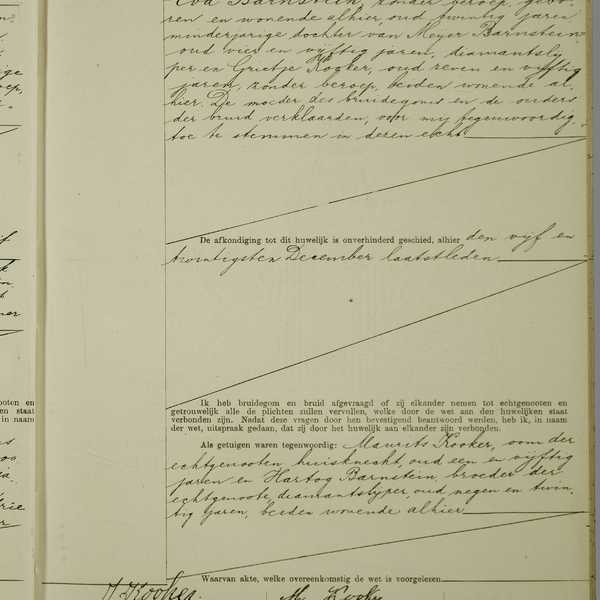 Eva Barnstein, zonder beroep, gebo-
ren en wonende alhier, oud twintig jaren
minderjarige dochter van Meyer Barnstein,
oud vier en vijftig jaren, diamantslij-
per en Grietje Kooker, oud zeven en vijftig
jaren, zonder beroep, beiden wonende al-
hier. De moeder des bruidegoms en de ouders
der bruid verklaarden, voor mij tegenwoordig,
toe te stemmen in deren echt
De afkondiging tot dit huwelijk is onverhinderd geschied, alhier den vijf en
twintigsten December laatstleden
Ik heb bruidegom en bruid afgevraagd of zij elkander nemen tot echtgenooten en
getrouwelijk alle de plichten zullen vervullen, welke door de wet aan den huwelijken staat
verbonden zijn. Nadat deze vragen door hen bevestigend beantwoord werden, heb ik, in naam
der wet, uitspraak gedaan, dat zij door het huwelijk aan elkander zijn verbonden.
Als getuigen waren tegenwoordig: Maurits Kooker, oom der
echtgenooten, huisknecht, oud een en vijftig
jaren en Hartog Barnstein, broeder der
echtgenoote, diamantslijper, oud negen en twin-
tig jaren, beiden wonende alhier
Waarvan akte, welke overeenkomstig de wet is voorgelezen.
Kooker. M. Kooker